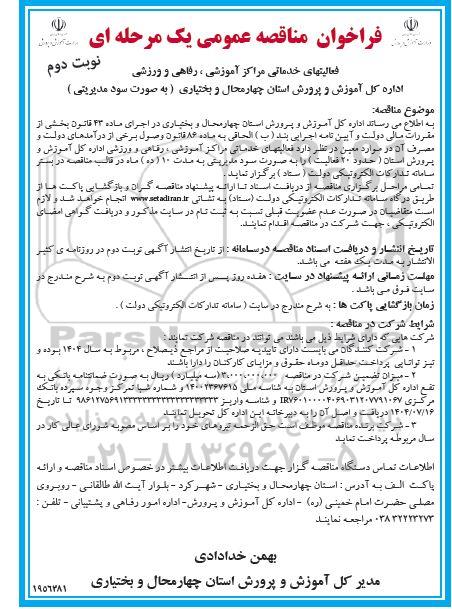 فراخوان مناقصه عمومی یک مرحله ای
نوبت دوم
فعالیتهای خدماتی مراکز آموزشی ، رفاهی و ورزشی
اداره کل آموزش و پرورش استان چهارمحال و بختیاری ( به صورت سود مدیریتی )
موضوع مناقصه:
به اطلاع می رساند اداره کل آموزش و پرورش استان چهارمحال و بختیاری در اجرای ماده ۴۳ قانون بخشی از
مقررات مالی دولت و آیین نامه اجرایی بند ( ب ) الحاقی به ماده ۸۶ قانون وصول برخی از درآمدهای دولت و
مصرف آن در موارد معین در نظر دارد فعالیتهای خدماتی مراکز آموزشی ، رفاهی و ورزشی اداره کل آموزش و
پرورش استان ( حدود ۲۰ فعالیت ) را به صورت سود مدیریتی به مدت ۱۰ ( ده ) ماه در قالب مناقصه در بستر
سامانه تدارکات الکترونیکی دولت ( ستاد ) برگزار نماید .
تمامی مراحل برگزاری مناقصه از دریافت اسناد تا ارائه پیشنهاد مناقصه گران و بازگشایی پاکت ها از
طریق درگاه سامانه تدارکات الکترونیکی دولت (ستاد) به نشانی www.setadiran.ir انجام خواهد شد و لازم
است متقاضیان در صورت عدم عضویت قبلی نسبت به ثبت نام در سایت مذکور و دریافت گواهی امضای
الکترونیکی ، جهت شرکت در مناقصه اقدام نمایند.
تاریخ انتشار و دریافت اسناد مناقصه درسامانه : از تاریخ انتشار آگهی نوبت دوم در روزنامه ی کثیر
الانتشار به مدت یک هفته می باشد.
مهلت زمانی ارائه پیشنهاد در سایت : هفده روز پس از انتشار آگهی نوبت دوم به شرح مندرج در
سایت فوق می باشد .
زمان بازگشایی پاکت ها : به شرح مندرج در سایت ( سامانه تدارکات الکترونیکی دولت ) .
شرایط شرکت در مناقصه :
شرکت هایی که دارای شرایط ذیل می باشند می توانند در مناقصه شرکت نمایند :
۱ – شرکت کنندگان می بایست دارای تاییدیه صلاحیت از مراجع ذیصلاح ، مربوط به سال ۱۴۰۴ بوده و
نیز توانایی پرداخت حداقل دوماه حقوق و مزایای کارکنان را دارا باشند.
۲ – میزان تضمین شرکت در مناقصه ۳/۰۰۰/۰۰۰/۰۰۰ (سه میلیارد ) ریال به صورت ضمانتنامه بانکی به
نفع اداره کل آموزش و پرورش استان به شناسه ملی ۱۴۰۰۲۳۶۷۶۱۵ و شماره شبا تمرکز وجوه سپرده بانک
تا تاریخ
۱۴۰۴/۰۷/۱۶ دریافت و اصل آن را به دبیرخانه این اداره کل تحویل نمایند.
۳ – شرکت برنده مناقصه موظف است حق الزحمه نیروهای خود را بر اساس مصوبه شورای عالی کار در
سال مربوطه پرداخت نماید
اطلاعات تماس دستگاه مناقصه گزار جهت دریافت اطلاعات بیشتر در خصوص اسناد مناقصه و ارائه
پاکت الف به آدرس : استان چهارمحال و بختیاری - شهرکرد - بلوار آیت الله طالقانی - روبروی
مصلی حضرت امام خمینی (ره) - اداره کل آموزش و پرورش- اداره امور رفاهی و پشتیبانی - تلفن :
۰۳۸ ۳۲۲۲۳۲۷۳ مراجعه نمایند.
بهمن خدادادی
مدیر کل آموزش و پرورش استان چهارمحال و بختیاری
۱۹۵۶۳۸۱
۰۲۱-۸۸۳۴۹۶۷۰-۵